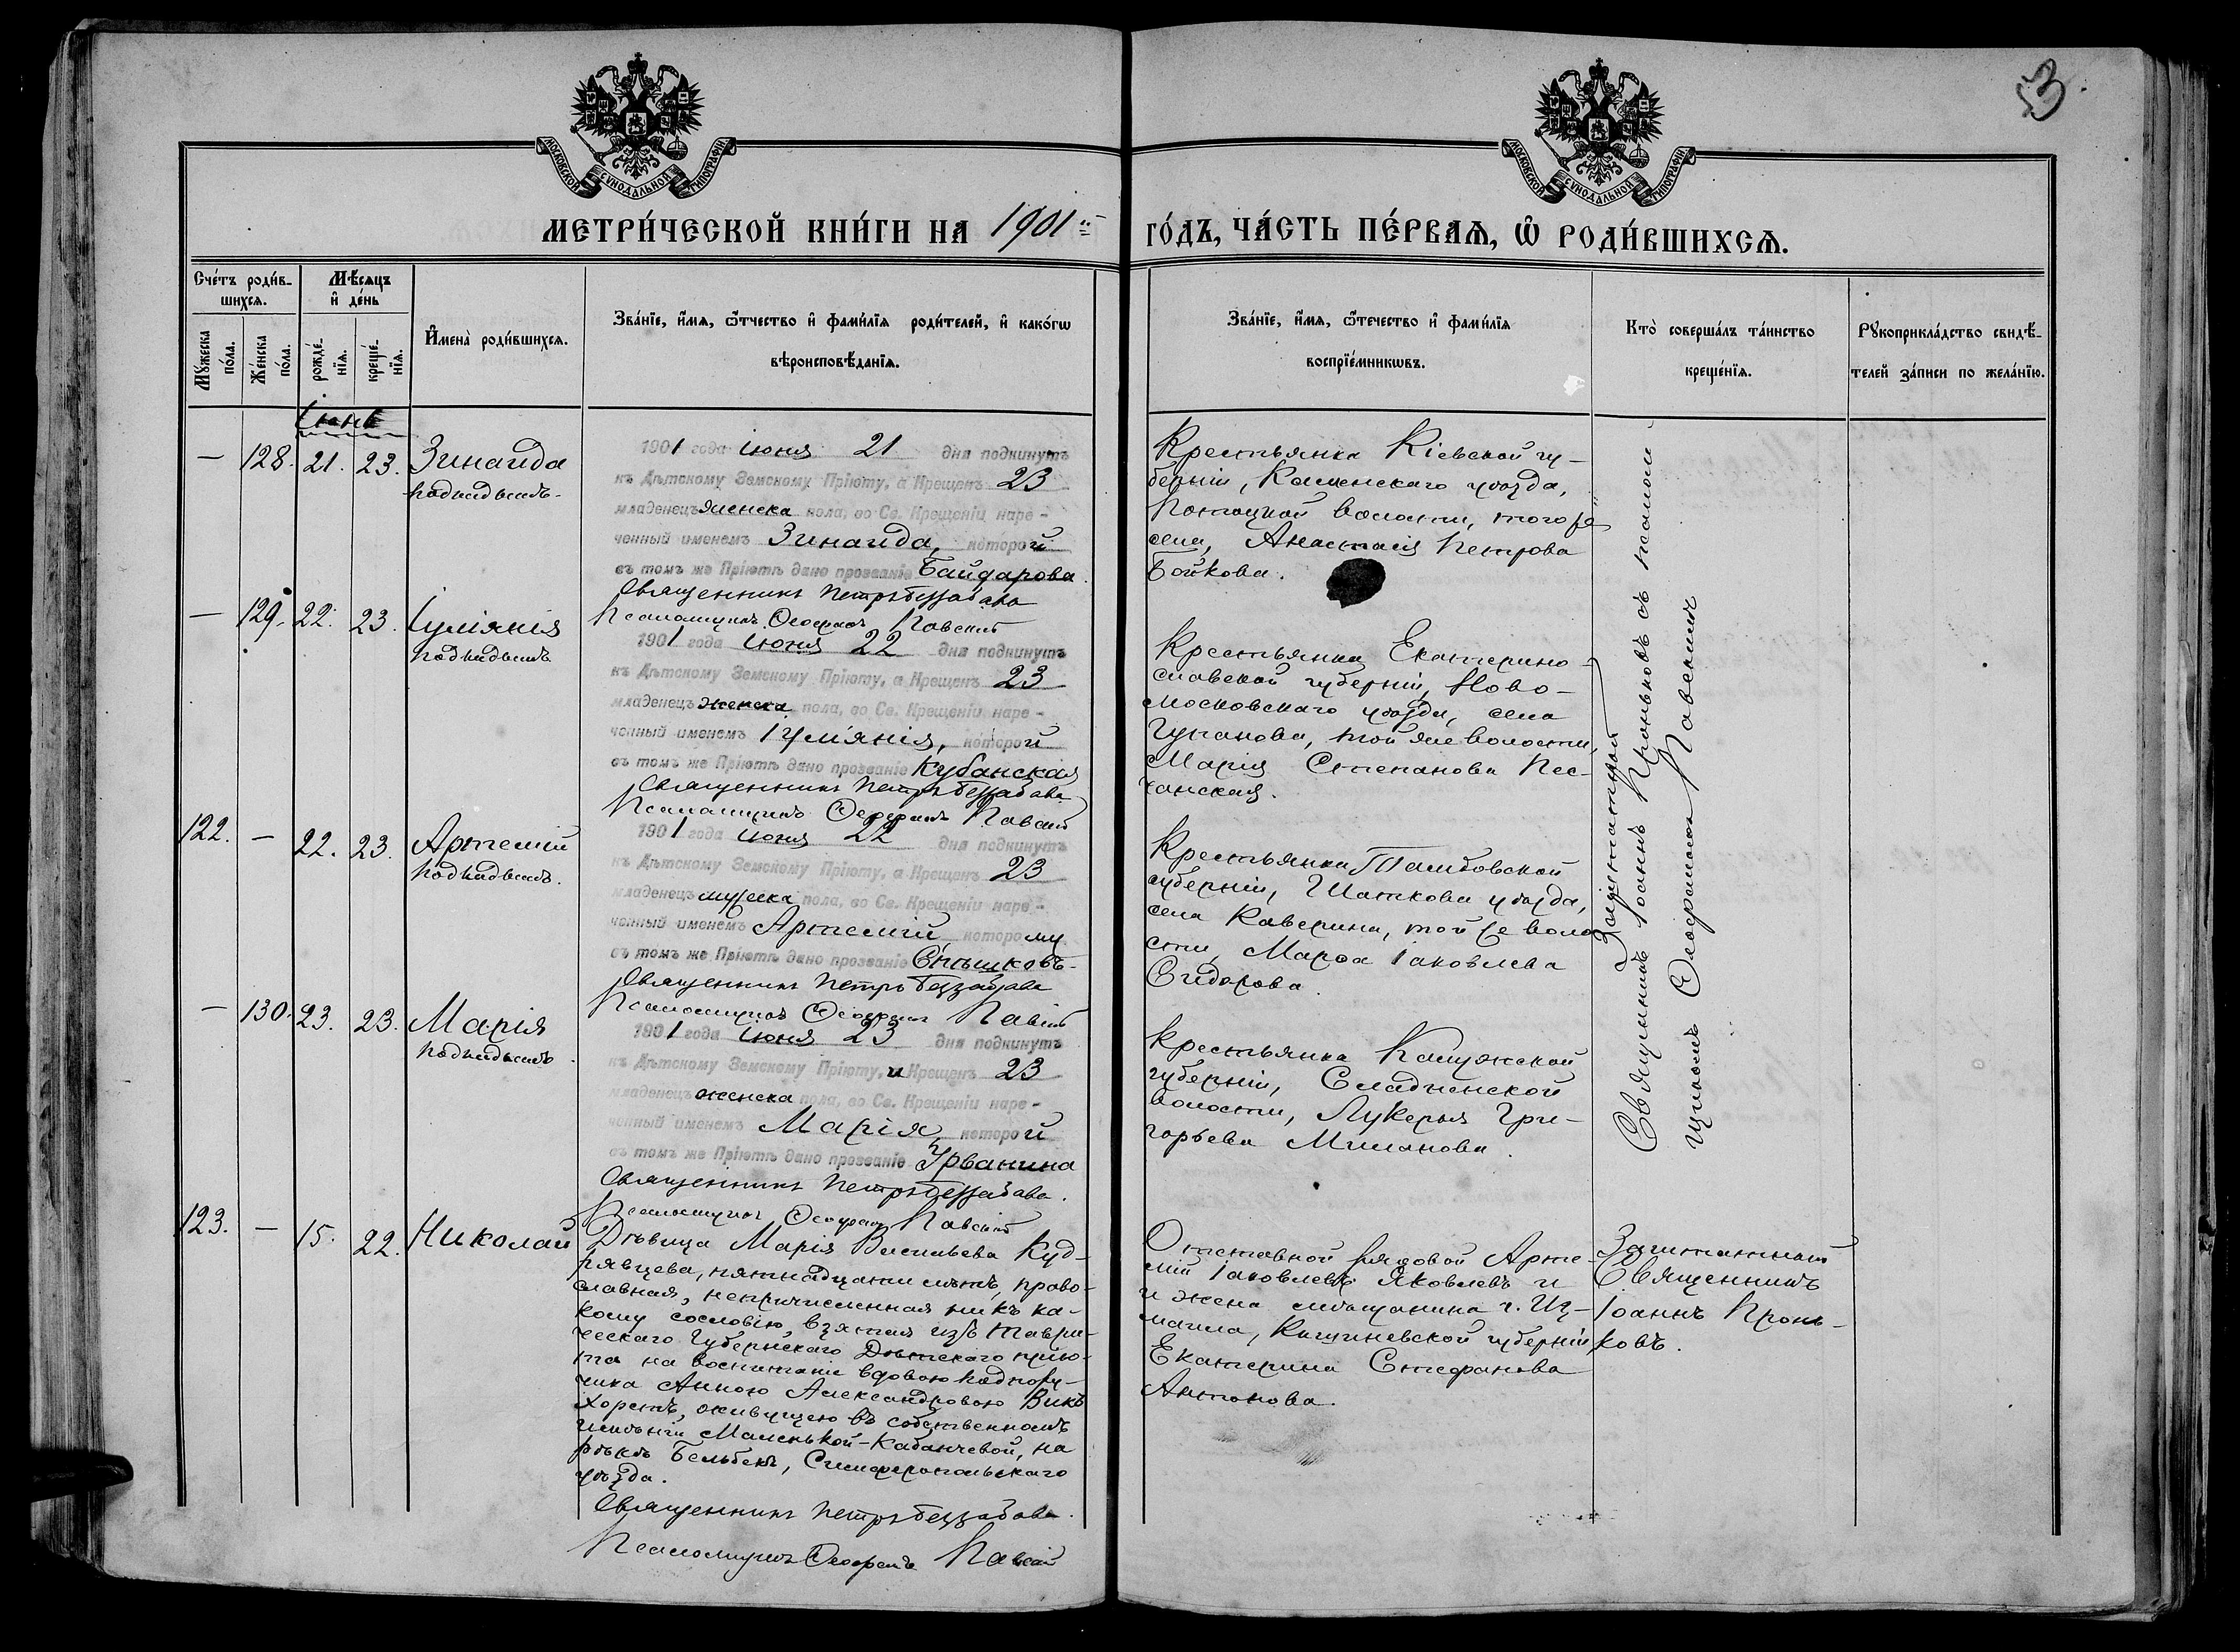 53
МОСКОВСКОЙ СУНОДАЛЬНОЙ ТИПОГРАФІИ
МОСКОВСКОЙ СУНОДАЛЬНОЙ ТИПОГРАФІИ
МЕТРИ́ЧЕСКОЙ КНИ́ГИ НА 1901й
ГО́ДЪ, ЧА́СТЬ ПЕ́РВАѦ, Ѡ РОДИ́ВШИХСѦ.
Сче́тъ роди́в-
шихсѧ.
Мꙋ́жеска
по́ла.
Же́нска
по́ла.
Мѣ́сѧцъ
и҆ де́нь
рожде́-
нїѧ.
креще́-
нїѧ.
И҆мена̀ роди́вшихсѧ.
Зва́нїе, и҆́мѧ, ѻ҆́тчество и҆ фами́лїѧ роди́телей, и҆ како́гѡ
вѣроисповѣ́данїѧ.
Зва́нїе, и҆́мѧ, ѻ҆́течество и҆ фами́лїѧ
воспрїе́мникѡвъ.
Кто̀ соверша́лъ та́инство
креще́нїѧ.
Рꙋкоприкла́дство свидѣ́-
телей за́писи по жела́нїю.
Іюнь
— 128. 21. 23. Зинаида
подкидышъ.
1901 года Іюня 21 дня подкинутъ
къ Дѣтскому Земскому Пріюту, а Крещенъ 23
младенецъ женска пола, во Св. Крещеніи наре-
ченный именемъ Зинаида, которой
въ томъ же Пріютѣ дано прозваніе Байдарова.
Священникъ Петръ Беззабава
Псаломщикъ Ѳеофанъ Павскій
Крестьянка Кіевской гу-
берніи, Каменскаго уѣзда,
Потоцкой волости, того же
села, Анастасія Петрова
Бойкова.
— 129. 22. 23. Іуліанія
подкидышъ
1901 года Іюня 22 дня подкинутъ
къ Дѣтскому Земскому Пріюту, а Крещенъ 23
младенецъ женска пола, во Св. Крещеніи наре-
ченный именемъ Іуліанія, которой
въ томъ же Пріютѣ дано прозваніе Кубанская
Священникъ Петръ Беззабава
Псаломщикъ Ѳеофанъ Павскій
Крестьянка Екатерино-
славской губерніи, Ново-
московскаго уѣзда, села
Гупанова, той же волости,
Марія Степанова Пес-
чанская.
122. — 22. 23. Артемій
подкидышъ.
1901 года Іюня 22 дня подкинутъ
къ Дѣтскому Земскому Пріюту, а Крещенъ 23
младенецъ мужеска пола, во Св. Крещеніи наре-
ченный именемъ Артемій, которому
въ томъ же Пріютѣ дано прозваніе Спѣшковъ.
Священникъ Петръ Беззабава
Псаломщикъ Ѳеофанъ Павскій
Крестьянка Тамбовской
губерніи, Шаткова уѣзда,
села Каверина, той же воло
сти, Марѳа Іаковлева
Сидорова.
— 130. 23. 23. Марія
подкидышъ.
1901 года Іюня 23 дня подкинутъ
къ Дѣтскому Земскому Пріюту, и Крещенъ 23
младенецъ женска пола, во Св. Крещеніи наре-
ченный именемъ Марія, которой
въ томъ же Пріютѣ дано прозваніе Урванина
Священникъ Петръ Беззабава.
Псаломщикъ Ѳеофанъ Павскій
Крестьянка Калужской
губерніи,
волости, Лукерья Гри-
горьева Миланова.
Заштатный
Священникъ Іоаннъ Проньковъ съ псалом
щикомъ Ѳеофаномъ Павскимъ
123. — 15. 22. Николай
Дѣвица Марія Васильева Куд-
рявцева, пятнадцати лѣтъ, право-
славная, непричисленная ни къ ка-
кому сословію, взятая изъ Таври-
ческаго Губернскаго Дѣтскаго прію-
та на воспитаніе вдовою подпору-
чика Анною Александровою Викъ
Хорстъ, живущею въ собственномъ
имѣніи Маленькой-Кабанчевой, на
рѣкѣ Бельбекъ, Симферопольскаго
уѣзда.
Священникъ Петръ Беззабава.
Псаломщикъ Ѳеофанъ Павскій
Отставной рядовой Арте-
мій Іаковлевъ Яковлевъ и
и жена мѣщанина г. Из-
маила, Кишиневской губерніи,
Екатерина Стефанова
Антонова.
Заштатный
Священникъ
Іоаннъ Пронь-
ковъ.